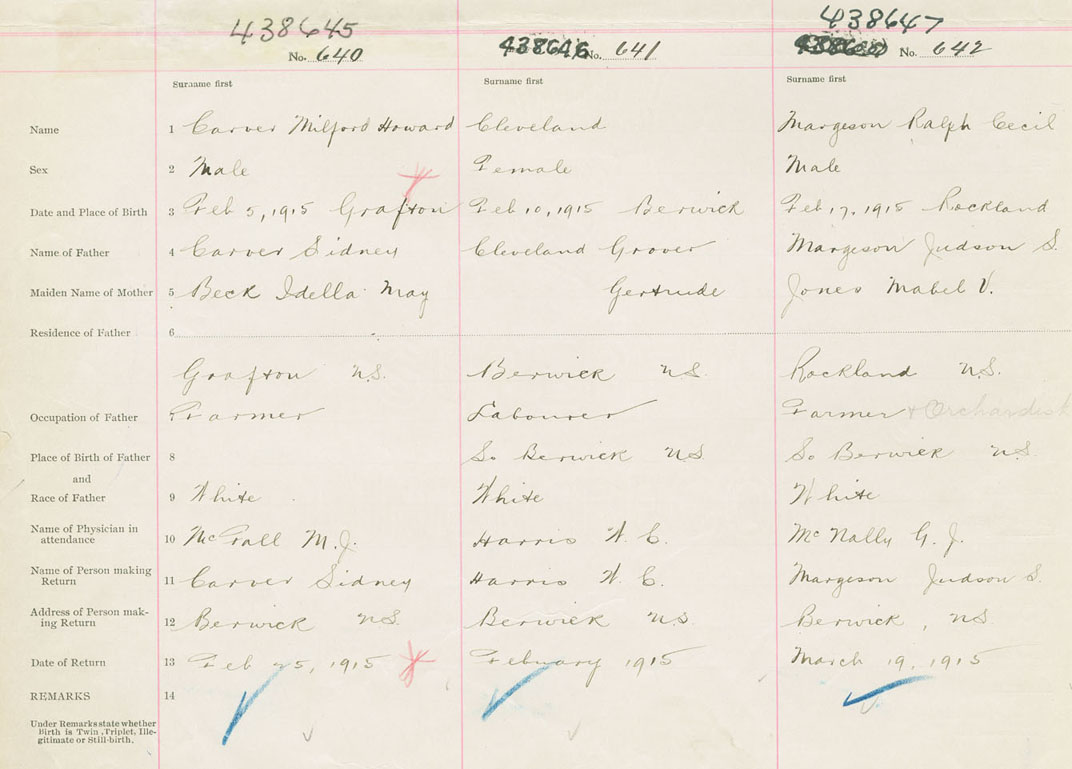 438645 438647
No. 640 438646 No. 641 No. 642
Surname first Surname first Surname first
Name 1 Carver Milford Howard Cleveland Margeson Ralph Cecil
Sex 2 Male Female Male
Date and Place of Birth 3 Feb 5, 1915 Grafton Feb 10, 1915 Berwick Feb 17, 1915 Rockland
Name of Father 4 Carver Sidney Cleveland Grover Margeson Judson S.
Maiden Name of Mother 5 Beck Idella May Gertrude Jones Mabel V.
Residence of Father 6
Grafton N.S. Berwick N.S. Rockland N.S.
Occupation of Father 7 Farmer Labourer Farmer + Orchardist
Place of Birth of Father 8 So Berwick N.S. So Berwick N.S.
and
Race of Father 9 White White White
Name of Physician in
attendance 10 M. J. Harris W. C. McNally G. J.
Name of Person making
Return 11 Carver Sidney Harris W. C. Margeson Judson S.
Address of Person mak-
ing Return 12 Berwick N.S. Berwick N.S. Berwick, N.S.
Date of Return 13 Feb 25, 1915 February 1915 March 19, 1915
REMARKS 14
Under Remarks state whether
Birth is Twin, Triplet, Ille-
gitimate or Still-birth.